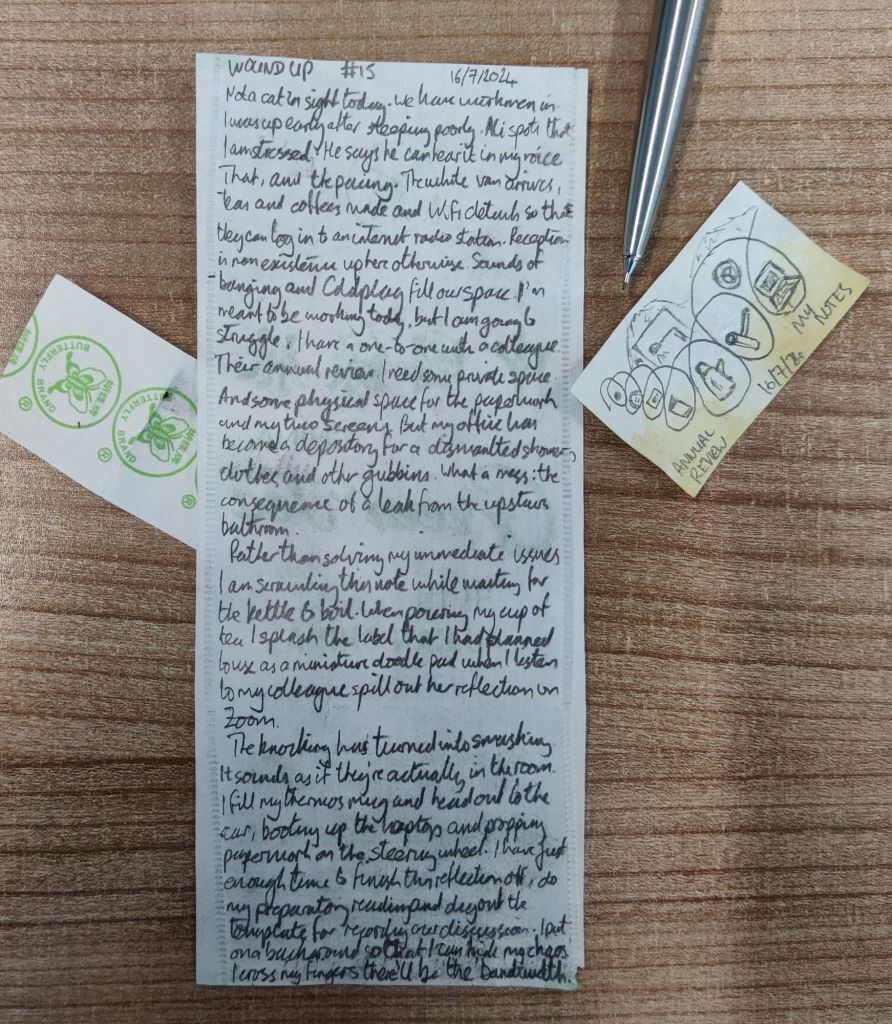 WOUND UP #15 16/7/2024
Not a cat in sight today. We have workmen in.
I was up early after sleeping poorly. Ali spots that
I am stressed. He says he can hear it in my voice
That, and the pacing. The white van arrives,
teas and coffees made and Wifi details so that
they can log in to an internet radio station. Reception
is non existence up here otherwise. Sounds of
banging and Coldplay fill our space. I'm
meant to be working today, but I am going to
struggle. I have a one-to-one with a colleague
Their annual review. I need some private space.
And some physical space for the paperwork
and my two screens. But my office has
become a depository for a dismantled shower,
clothes and other gubbins. What a mess: the
consequence of a leak from the upstairs
bathroom.
Rather than solving my immediate issues
I am scrawling this note while waiting for
the kettle to boil. When pouring my cup of
tea I splash the label that I had planned
to use as a miniature doodle pad when I listen
to my colleague spill out her reflection on
Zoom.
The knocking has turned into smashing
It sounds as if they're actually in the room.
I fill my thermos mug and head out to the
car, booting up the laptop and propping
paperwork on the steering wheel. I have just
enough time to finish this reflection off, do
my preparatory reading and dig out the
template for recording our discussion. I put
on a background so that I can hide my chaos
I cross my fingers there'll be the bandwidth.
BUTTERFLY
BRAND
®
BUTTERFLY
BRAND
®
MY NOTES
16/7/24
ANNUAL
REVIEW